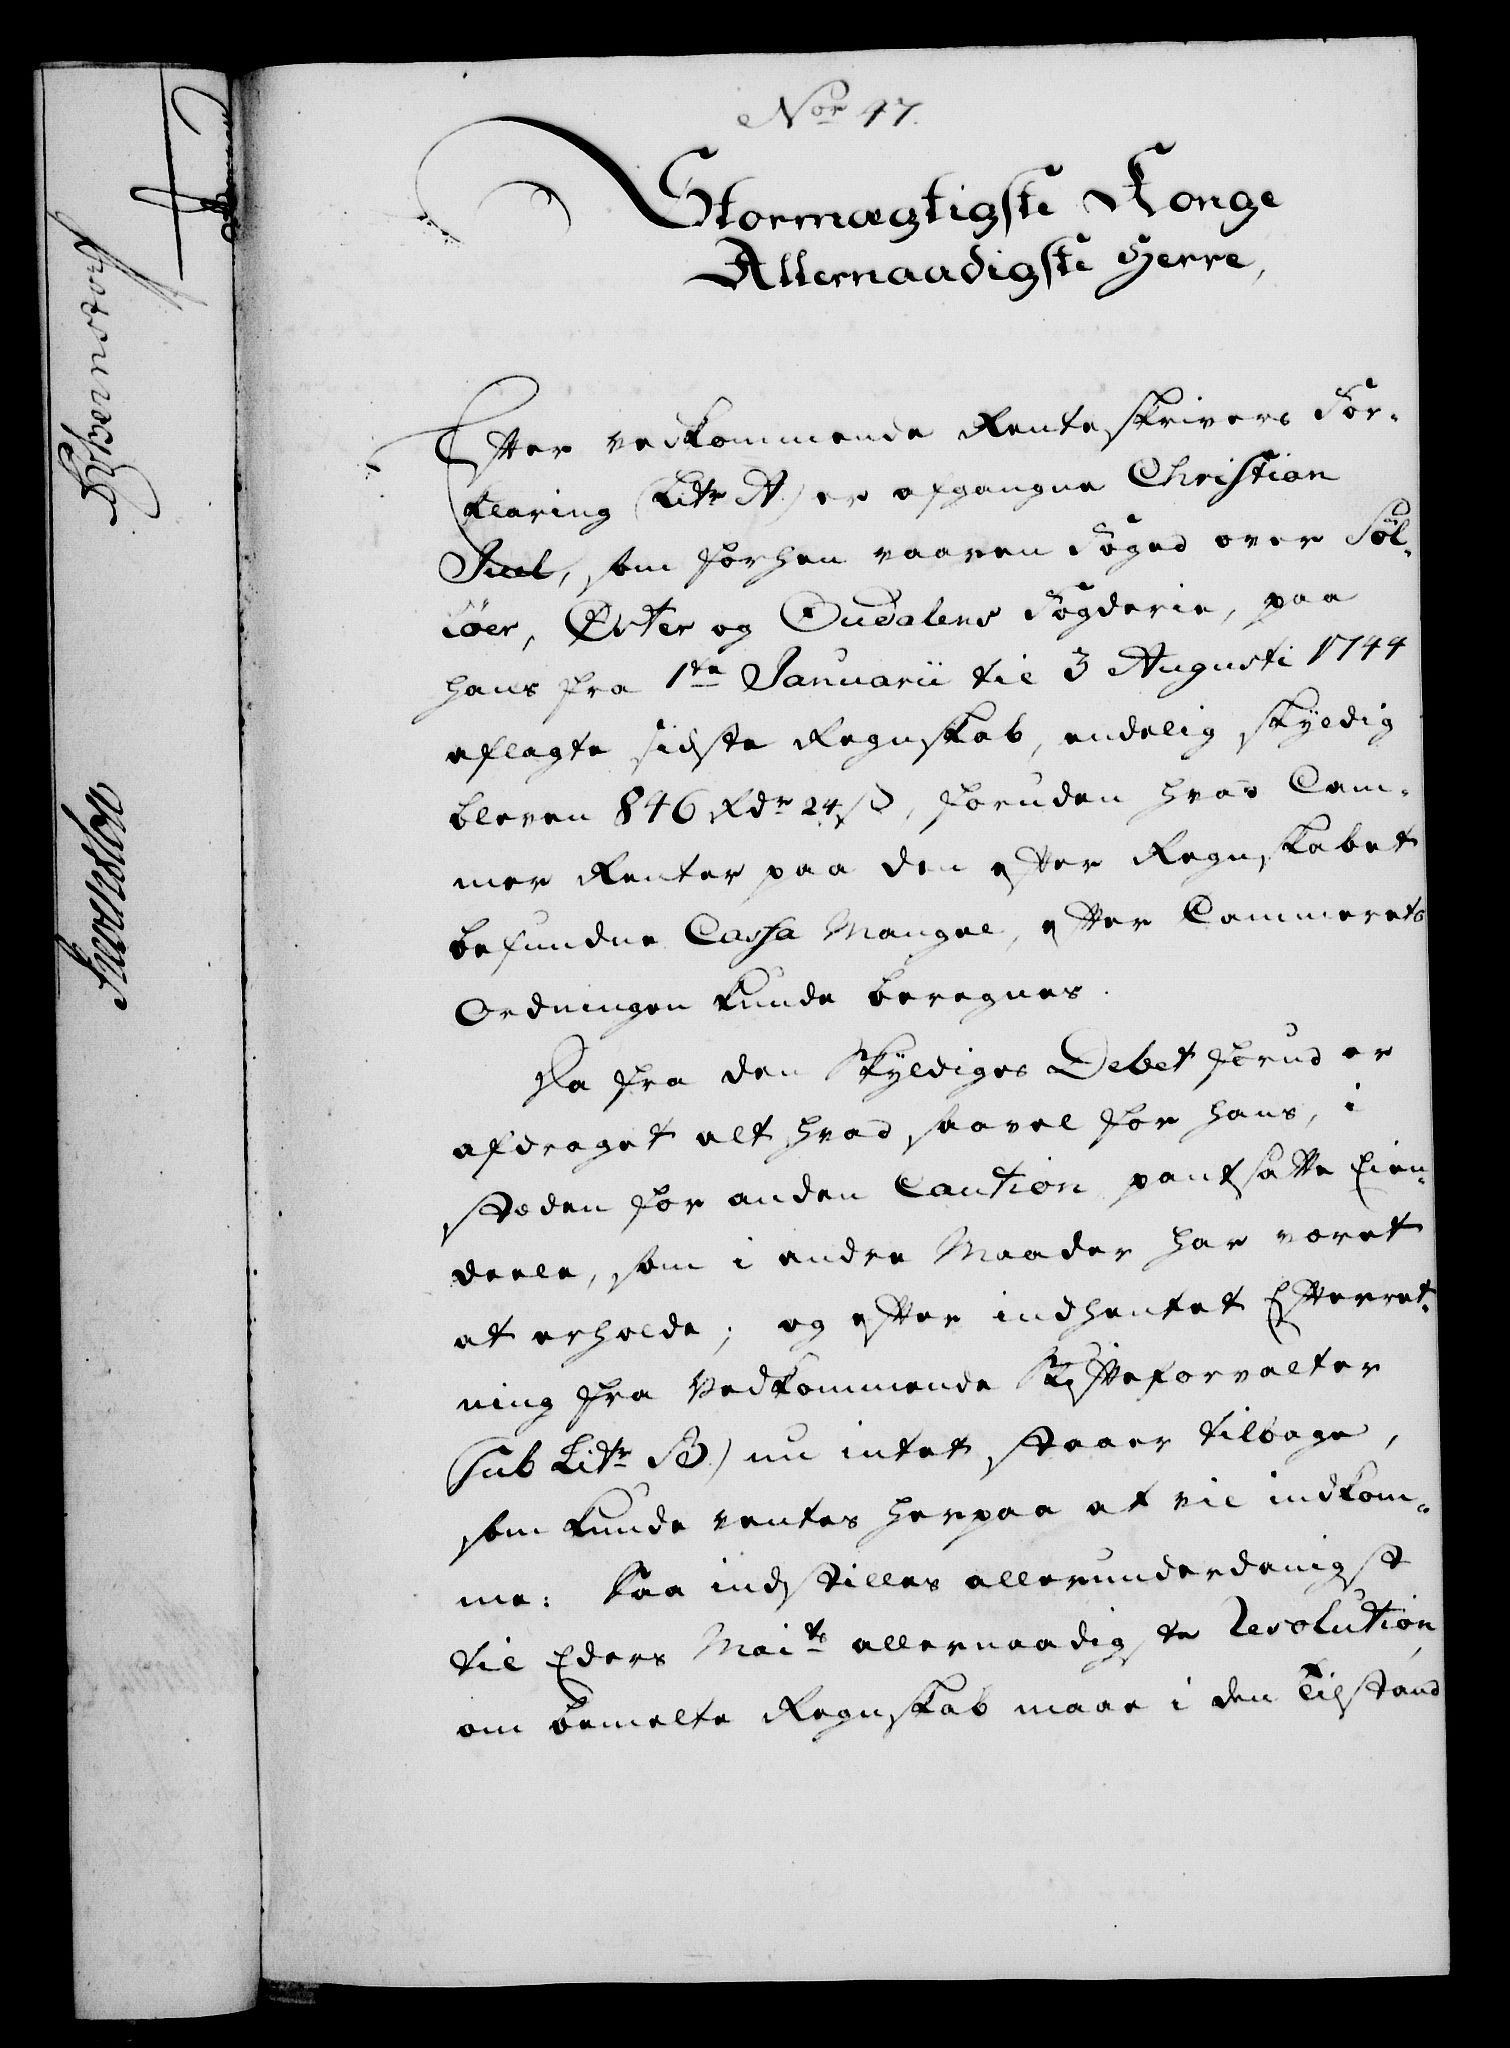 Nor 47.
Stormægtigste Konge
Allernaadigste Herre,
Efter vedkommende Renteskrivers For-
klaring (Litr A) er afgangne Christian
Juel, som forhen vaaren Foged over Sol-
löer, Öster og Oudalens Fogderie, paa
hans fra 1te Januarii til 3 Augusti 1744
aflagte sidste Regnskab, endelig skyldig
bleven 846 Rdr 24 ß, foruden hvad Cam-
mer Renter paa den efter Regnskabet
befundne Cassa Mangel, efter Cammerets
Ordningen kunde beregnes.
Da fra den Skyldiges Debet forud er
afdraget alt hvad saavel for hans, i
steden for anden Caution pantsatte Eien-
deele, som i andre Maader har været
at erholde; og efter indhentet Efterret-
ning fra Vedkommende Skifteforvalter
(sub Litr B) nu intet staaer tilbage,
som kunde ventes herpaa at vil indkom-
me: Saa indstilles allerunderdanigst
til Eders Maits allernaadigste Resolution,
om bemelte Regnskab maae i den Tilstand